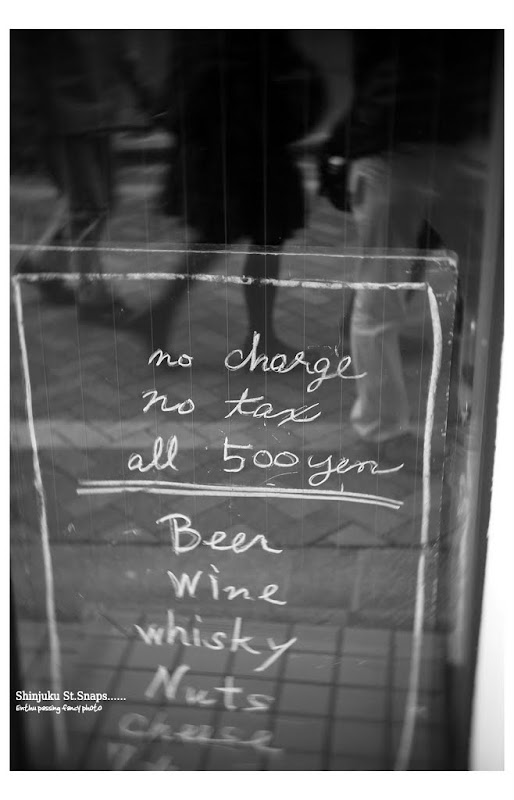 no charge
no tax
all 500 yen
Beer
Wine
whisky
Nuts
cheese
Shinjuku St.Snaps......
Enthu passing fancy photo